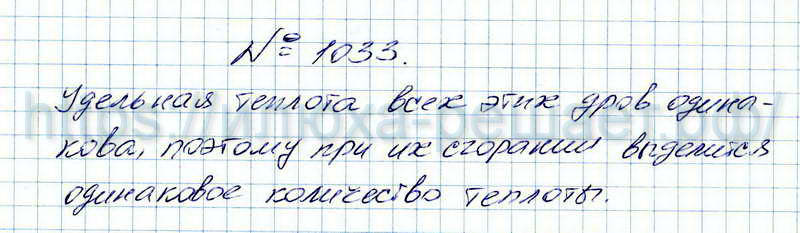 № 1033.
Удельная теплота всех этих дров одина-
кова, поэтому при их сгорании выделится
одинаковое количество теплоты.